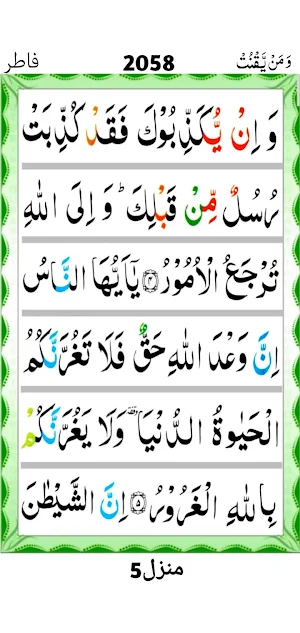 فاطر 2058 وَمَنْ يَّقْنُتْ
وَ اِنْ يُّكَذِّبُوْكَ فَقَدْ كُذِّبَتْ
رُسُلٌ مِّنْ قَبْلِكَ ؕ وَ اِلَى اللّٰهِ
تُرْجَعُ الْاُمُوْرُ ﴿۴﴾ يٰۤاَيُّهَا النَّاسُ
اِنَّ وَعْدَ اللّٰهِ حَقٌّ فَلَا تَغُرَّنَّكُمُ
الْحَيٰوةُ الدُّنْيَا ٝ وَلَا يَغُرَّنَّكُمْ
بِاللّٰهِ الْغَرُوْرُ ﴿۵﴾ اِنَّ الشَّيْطٰنَ
منزل5